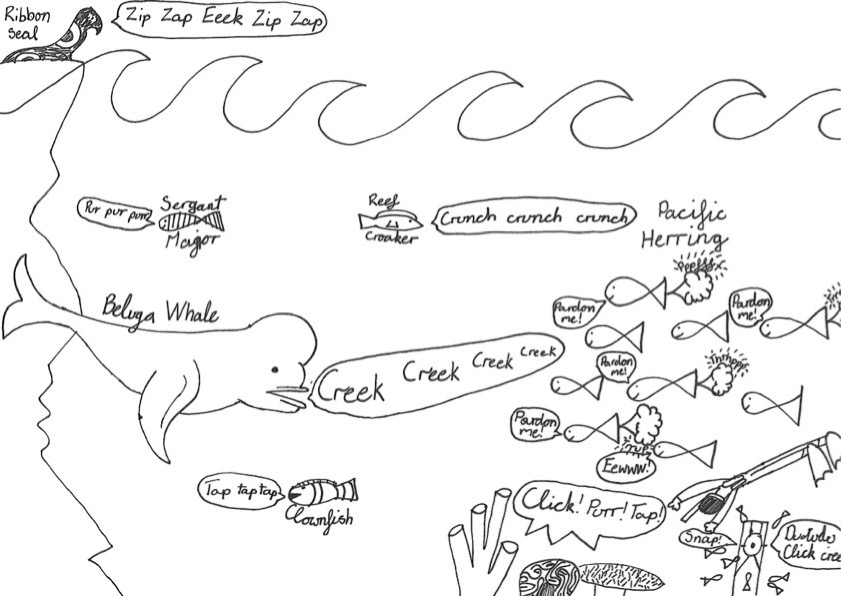 Ribbon
seal
Zip Zap Eeek Zip Zap
Pur pur purr
Sergant
Major
Reef
Croaker
Crunch crunch crunch
Pacific
Herring
Pardon
me!
Pardon
me!
Beluga Whale
Creek Creek Creek Creek
Pardon
me!
Pardon
me!
Eewww!
Tap tap tap
Clownfish
Click! Purr! Tap!
Snap!
Click